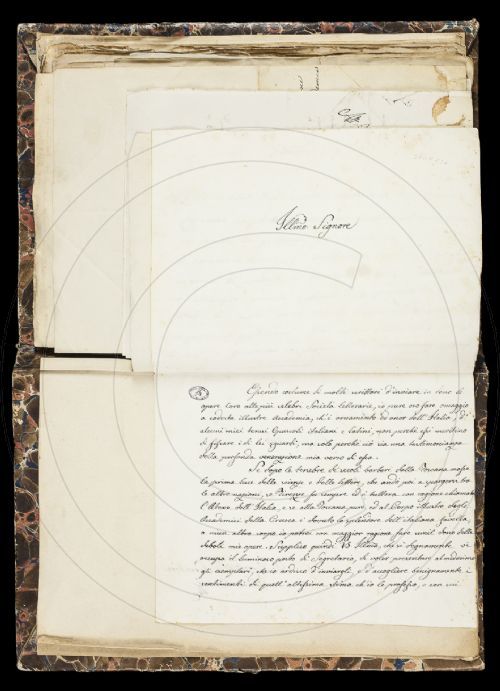 Illmo Signore
Essendo costume di molti scrittori d'inviare in dono le
opere loro alle più celebri Società letterarie, io pure oso fare omaggio
a codesta illustre Accademia, ch'è ornamento ed onor dell'Italia, di
alcuni miei tenui Opuscoli italiani e latini, non perchè essi meritino
di fissare i di lei sguardi, ma solo perchè ciò sia una testimonianza
della profonda venerazione mia verso di essa.
Se dopo le tenebre di secoli barbari dalla Toscana mosse
la prima luce delle scienze e delle lettere, che andò poi a spargersi tra
le altre nazioni, e Firenze fu sempre ed è tuttora con ragione chiamata
l'Atene dell'Italia, e se alla Toscana pure, ed al Corpo illustre degli
Accademici della Crusca è dovuto lo splendore dell'italiana favella,
a niun altro corpo io potrei con maggior ragione fare umil dono delle
deboli mie opere. Supplico quindi VS Illma, che sì degnamente
occupa il luminoso posto di Segretario, di voler presentare al medesimo
gli esemplari, che io ardisco d'inviargli, e d'accogliere benignamente i
sentimenti di quell'altissima stima, ch'io le professo, e con cui